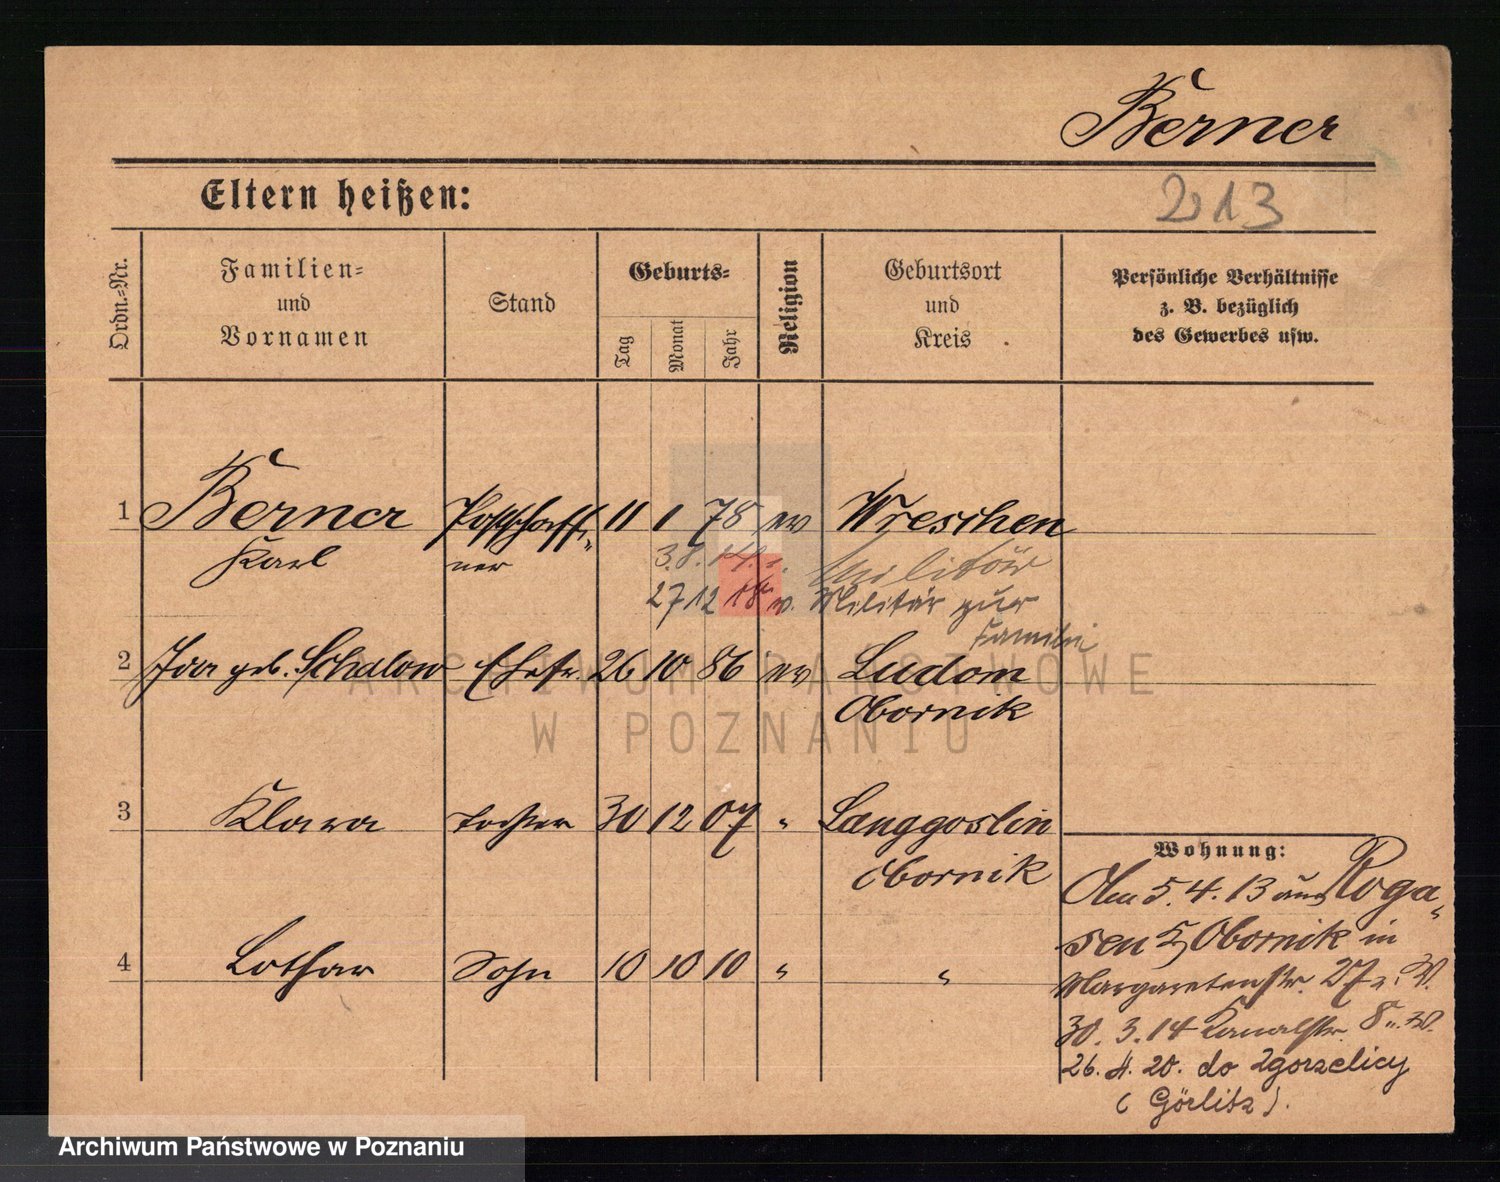 Berner
Eltern heißen:
213
Ordn.=Nr.
Familien=
und
Vornamen
Stand
Geburts=
Tag
Monat
Jahr
Religion
Geburtsort
und
Kreis
Persönliche Verhältnisse
z. B. bezüglich
des Gewerbes usw.
1 Berner Postschaff= 11 1 78 ev Wreschen
Karl ner 3.8.14. Militär
27 12 18 v. Militär zur
Familie
2 Ida geb. Schalow Ehefr. 26 10 86 ev Ludom
Obornik
3 Klara Tochter 30 12 07 " Langgoslin
Obornik
4 Lothar Sohn 10 10 10 " "
Wohnung:
Am 5.4.13 aus Roga=
sen Obornik in
Margaretenstr. 27 W.
30.3.14 Kanalstr. 8 W.
26.4.20. do Zgorzelicy
(Görlitz).
ARCHIWUM PAŃSTWOWE
W POZNANIU
Archiwum Państwowe w Poznaniu